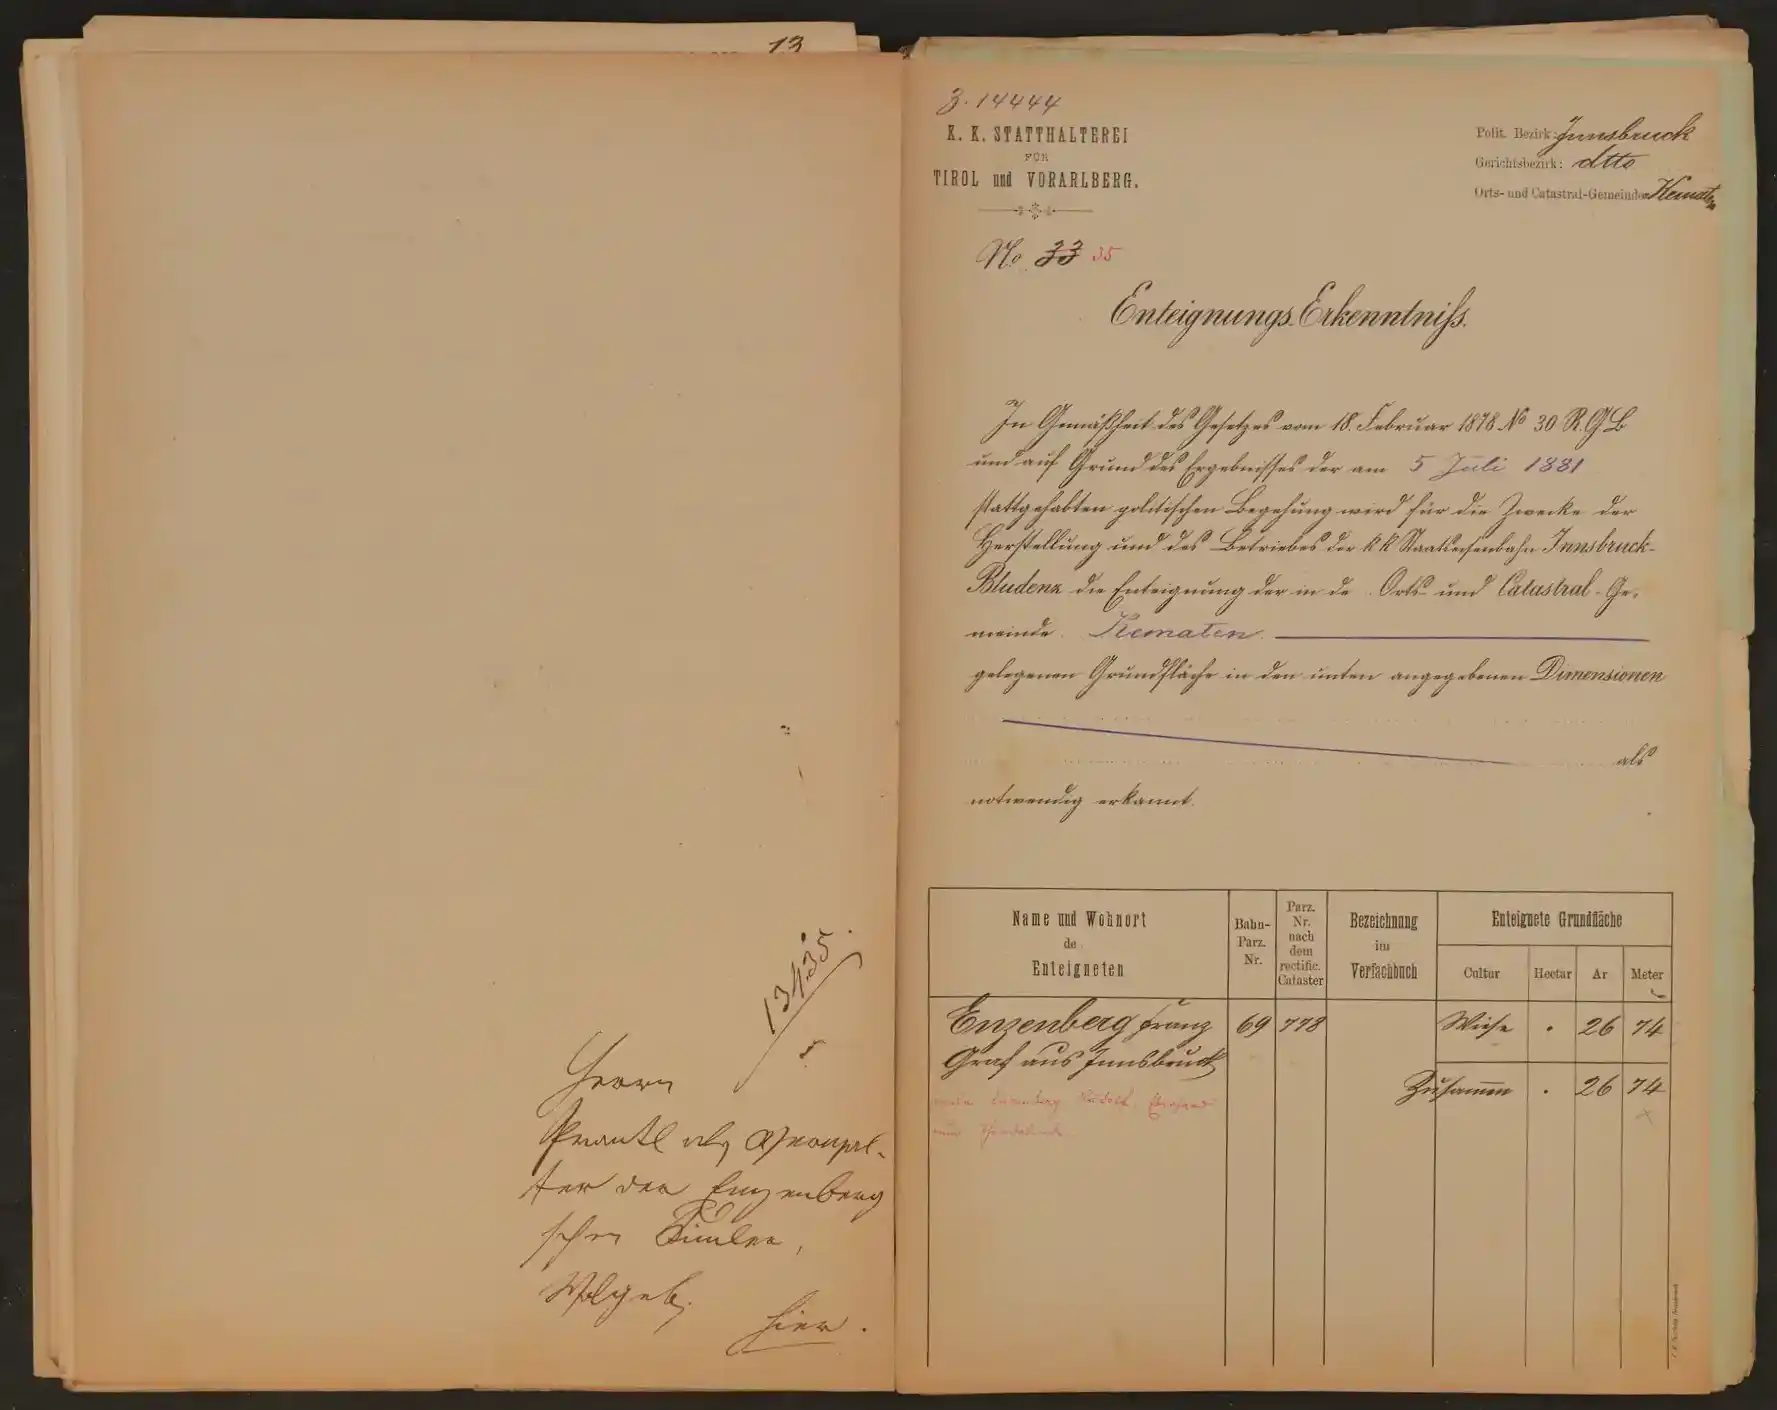 13
13435
Herrn
Prantl als Verwal-
ter der Enzenberg
schen Güter,
Wolgeb.
hier.
Z. 14444
K. K. STATTHALTEREI
FÜR
TIROL und VORARLBERG.
Polit. Bezirk: Innsbruck
Gerichtsbezirk: dtto
Orts- und Catastral-Gemeinde Kematen
No 33 35
Enteignungs-Erkenntniß.
In Gemäßheit des Gesetzes vom 18. Februar 1878 No 30 R.G.B
und auf Grund des Ergebnisses der am 5 Juli 1881
stattgehabten politischen Begehung wird für die Zwecke der
Herstellung und des Betriebes der k k Staatseisenbahn Innsbruck-
Bludenz die Enteignung der in de Orts- und Catastral-Ge-
meinde Kematen
gelegenen Grundfläche in den unten angegebenen Dimensionen
als
notwendig erkannt.
Name und Wohnort
de
Enteigneten
Bahn-
Parz.
Nr.
Parz.
Nr.
nach
dem
rectific.
Cataster
Bezeichnung
im
Verfachbuch
Enteignete Grundfläche
Cultur Hectar Ar Meter
Enzenberg Franz 69 778 Wiese . 26 74
Graf aus Innsbruck
Zusammen . 26 74
Enzenberg Rudolf,